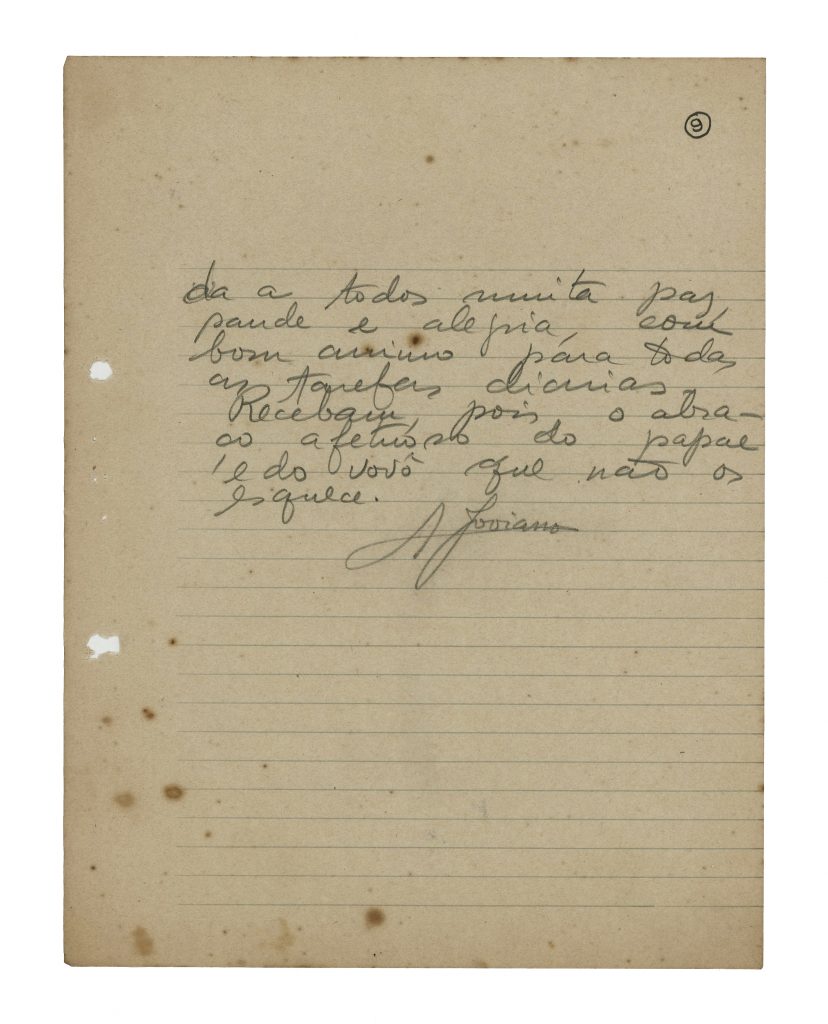 9
da a todos muita paz
saude e alegria, com
bom animo pára todas
as tarefas diarias.
Recebam, pois, o abra-
ço afetuoso do papae
e do vovô que não os
esquece.
A Joviano